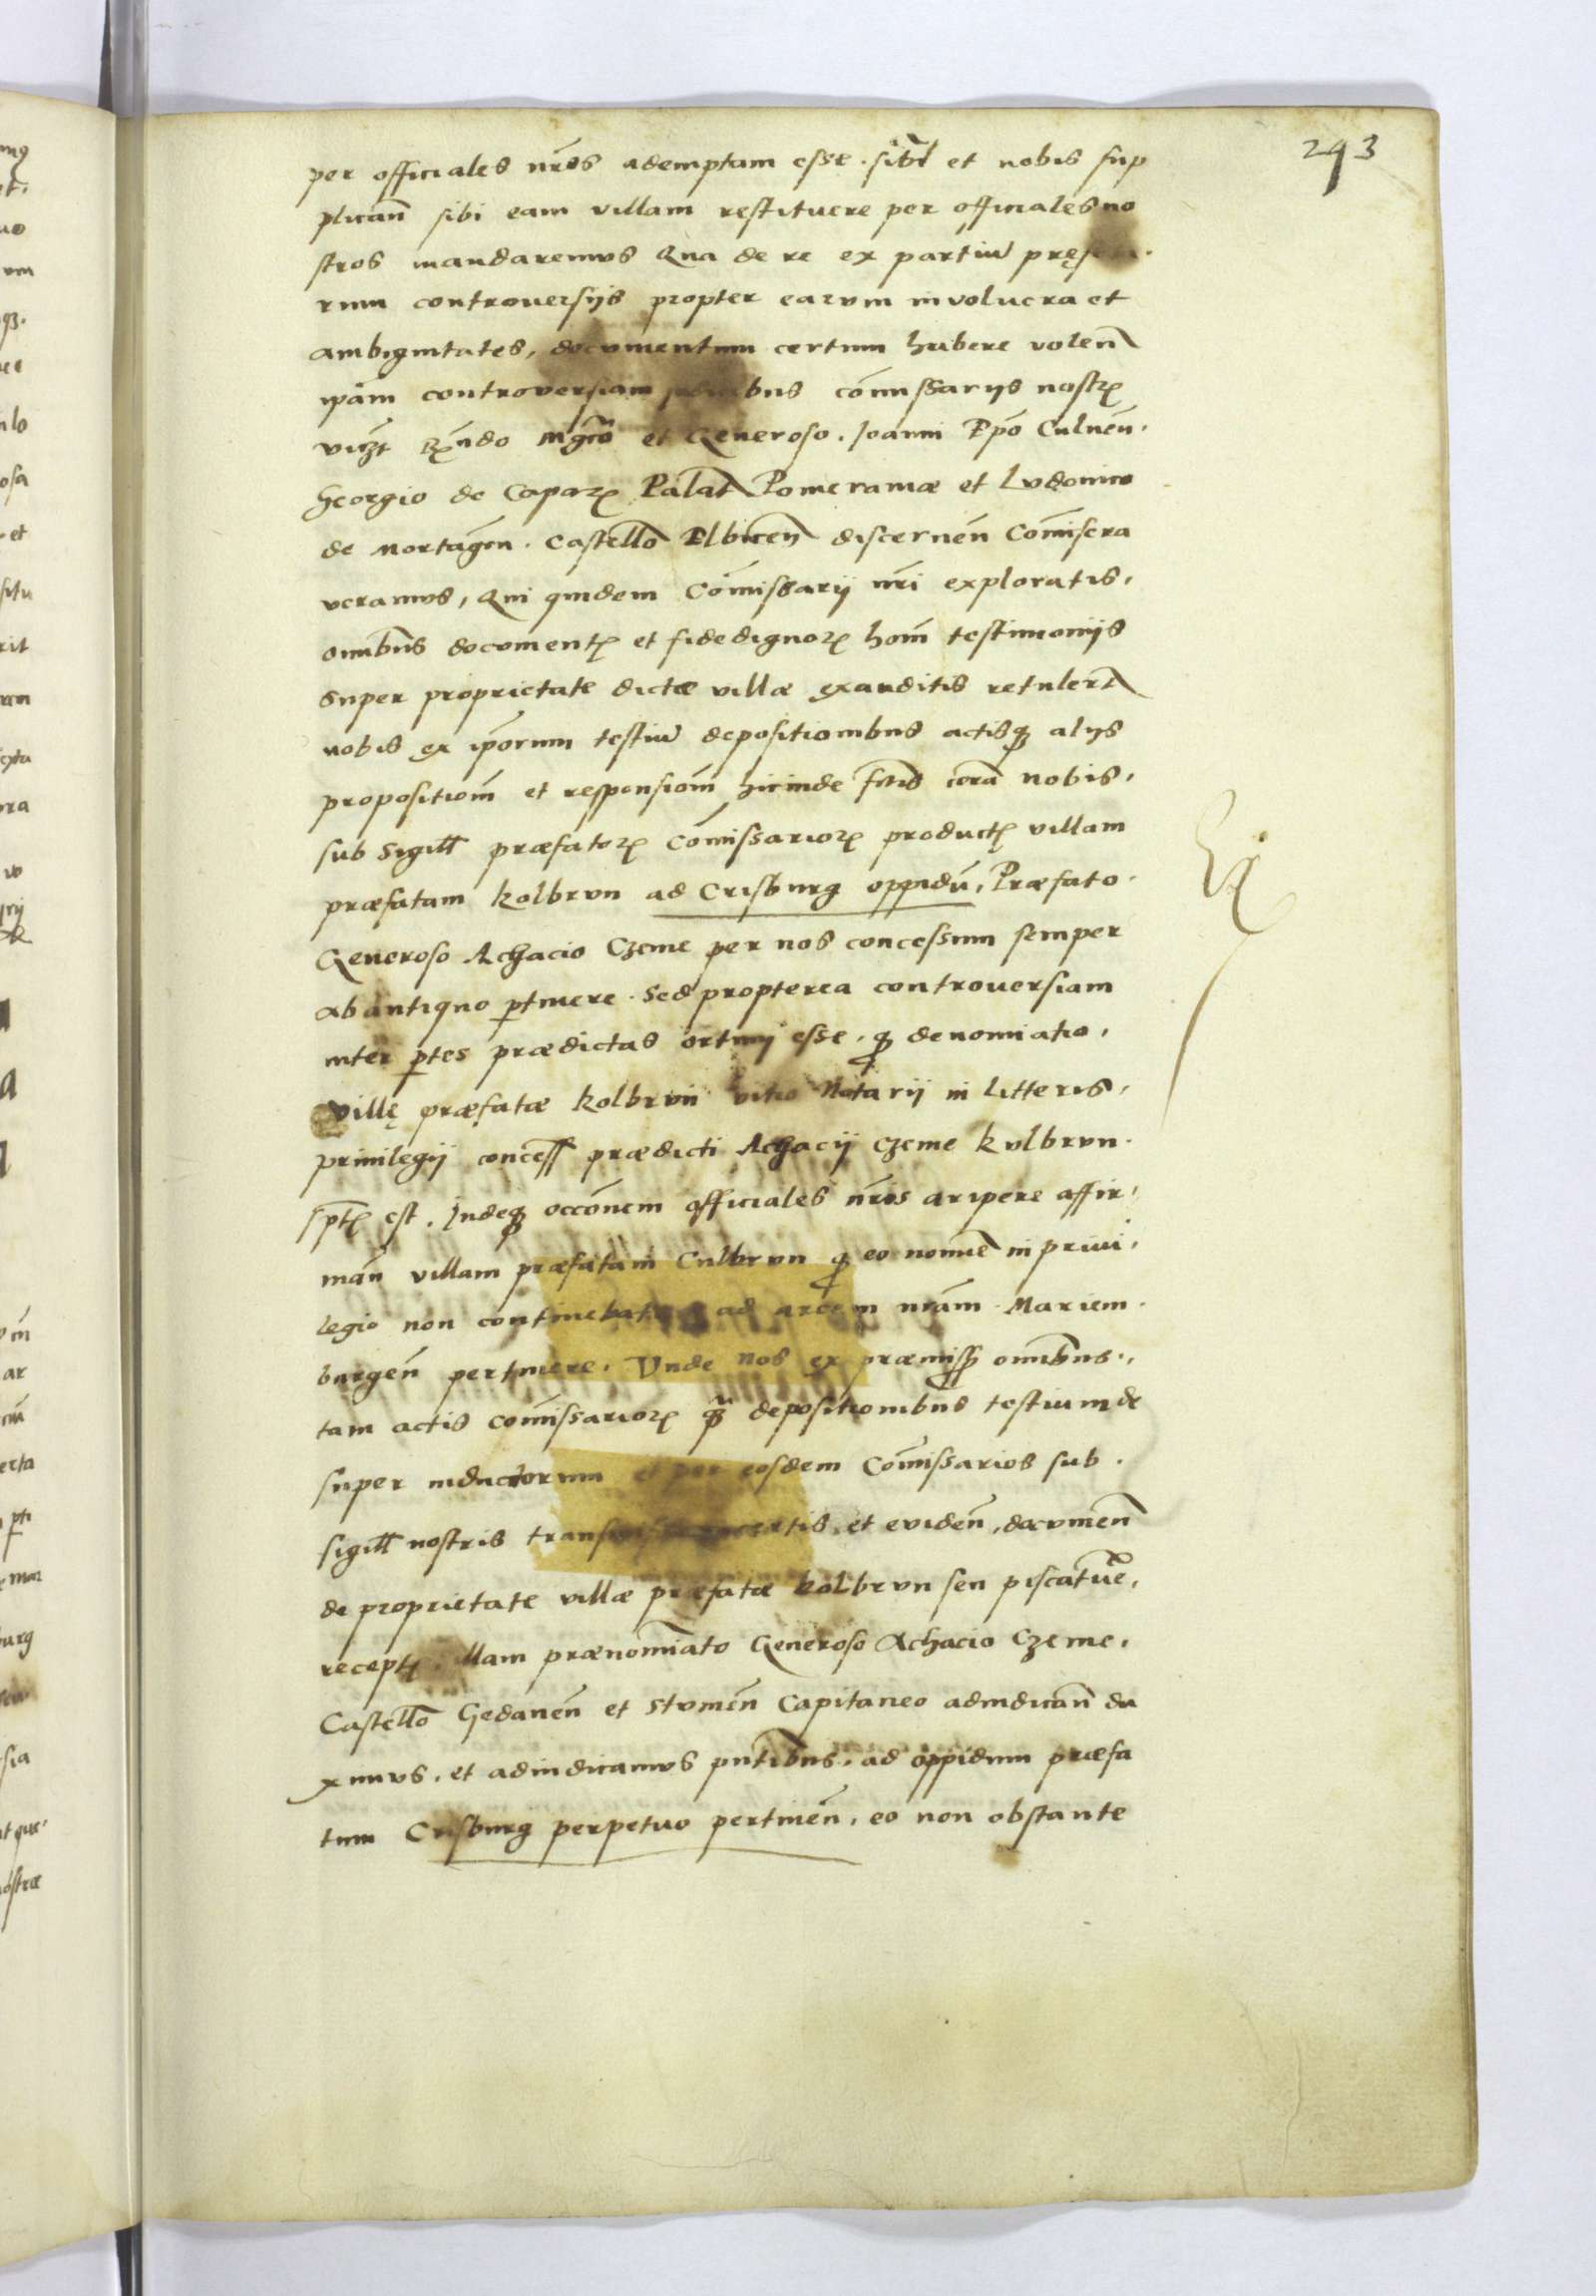 293
per officiales nr̃os ademptam esse. sibi et nobis sup
plicañ sibi eam villam restituere per officiales no
stros mandaremus Qua de re ex partiũ
rum controuersijs propter earum involucra et
ambiguitates, documentum certum habere voleñ
ip̃am controversiam com̃issarijs nostrꝭ
vicꝫt Rꝭndo mg̃co et Generoso. Joanni Ep̃o Culmeñ.
Georgio de Capacꝫ Palat̃ Pomeraniæ et Ludouico
de Mortãgen. Castellõ Elbiceñ discerneñ Com̃isera
veramus, Qui quidem Com̃issarij nr̃i exploratis,
omnibus documentꝭ et fidedignorꝭ hom̃ testimonijs
super proprietate dictæ villæ exauditis retulerũt
nobis ex ip̃orum testiũ depositionibus actisqꝫ alijs
propositiom̃ et responsiom̃ hicinde fc̃tis corã nobis,
sub Sigill præfatorꝭ Com̃issariorꝭ productꝭ villam
præfatam kolbrun ad Crisburg oppidũ, Præfato.
Generoso Achacio Czeme per nos concessum semper
ab antiquo ptinere. Sed propterea controuersiam
inter ptes prædictas ortam esse. qꝫ denomiatio,
villę præfatæ kolbrun vitio Notarij in litteris,
priuilegij concess prædicti Achacij czeme kulbrun.
sptꝭ est. Indeqꝫ occõnem officiales nr̃os aripere affir,
mañ villam præfatam Culbrun qꝫ eo nomiẽ in priui,
legio non continebatur ad arcem nr̃am Mariem.
burgeñ pertinere. Unde nos ex præmissꝭ omnibus.,
tam actis com̃issariorꝭ qꝫ̃ depositionibus testium de
super inductorum et per eosdem Com̃issarios sub.
sigill nostris et evideñ, documeñ
de proprietate villæ præfatæ kolbrun seu piscatuẽ,
receptꝭ. illam prænomĩato Generoso Achacio Czeme,
Castellõ Gedaneñ et Stumeñ Capitaneo adiudicañ du
ximus, et adiudicamus pñtibus. ad oppidum præfa
tum Crisburg perpetuo pertineñ, eo non obstante